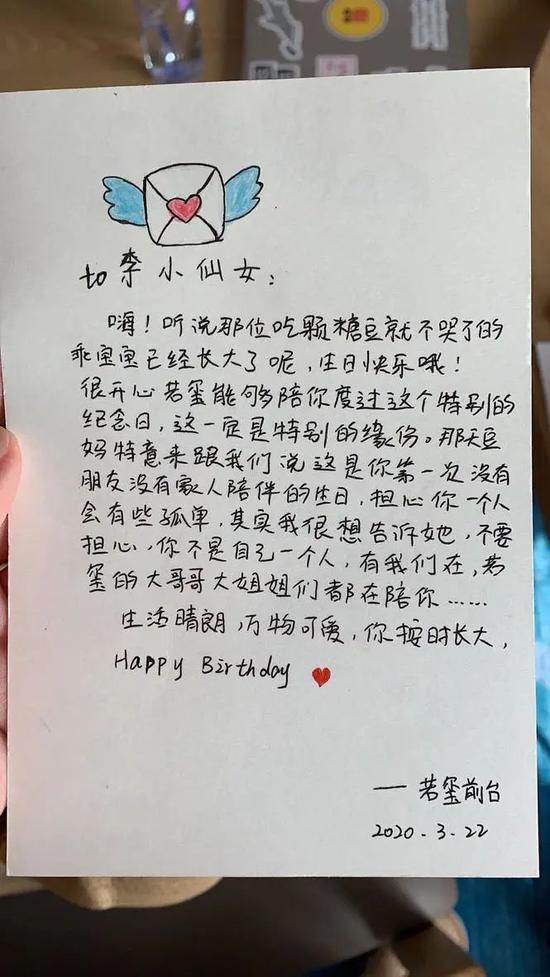 to 李小仙女：
嗨！听说那位吃颗糖豆就不哭了的
乖宝宝已经长大了呢，生日快乐哦！
很开心若玺能够陪你度过这个特别的
纪念日，这一定是特别的缘份。那天豆
妈特意来跟我们说这是你第一次没有
朋友没有家人陪伴的生日，担心你一个人
会有些孤单，其实我很想告诉她，不要
担心，你不是自己一个人，有我们在，若
玺的大哥哥大姐姐们都在陪你……
生活晴朗，万物可爱，你按时长大，
Happy Birthday
——若玺前台
2020.3.22